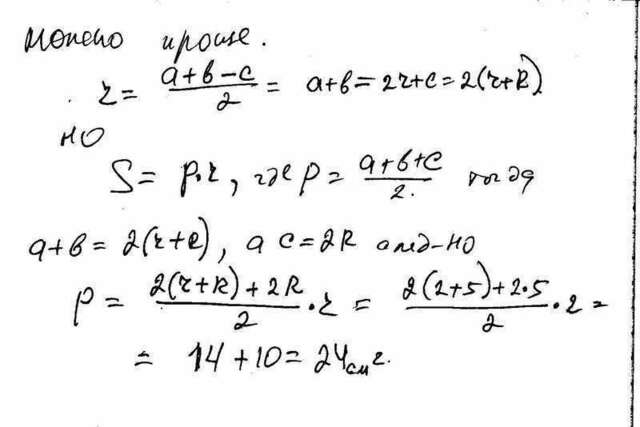 Можно проще.
r = (a+b-c)/2 = a+b = 2r+c = 2(r+R)
НО
S = p·r, где p = (a+b+c)/2. тогда
a+b = 2(r+R), а c = 2R след-но
P = (2(r+R)+2R)/2 · r = (2(2+5)+2·5)/2 · 2 =
= 14+10 = 24 см².